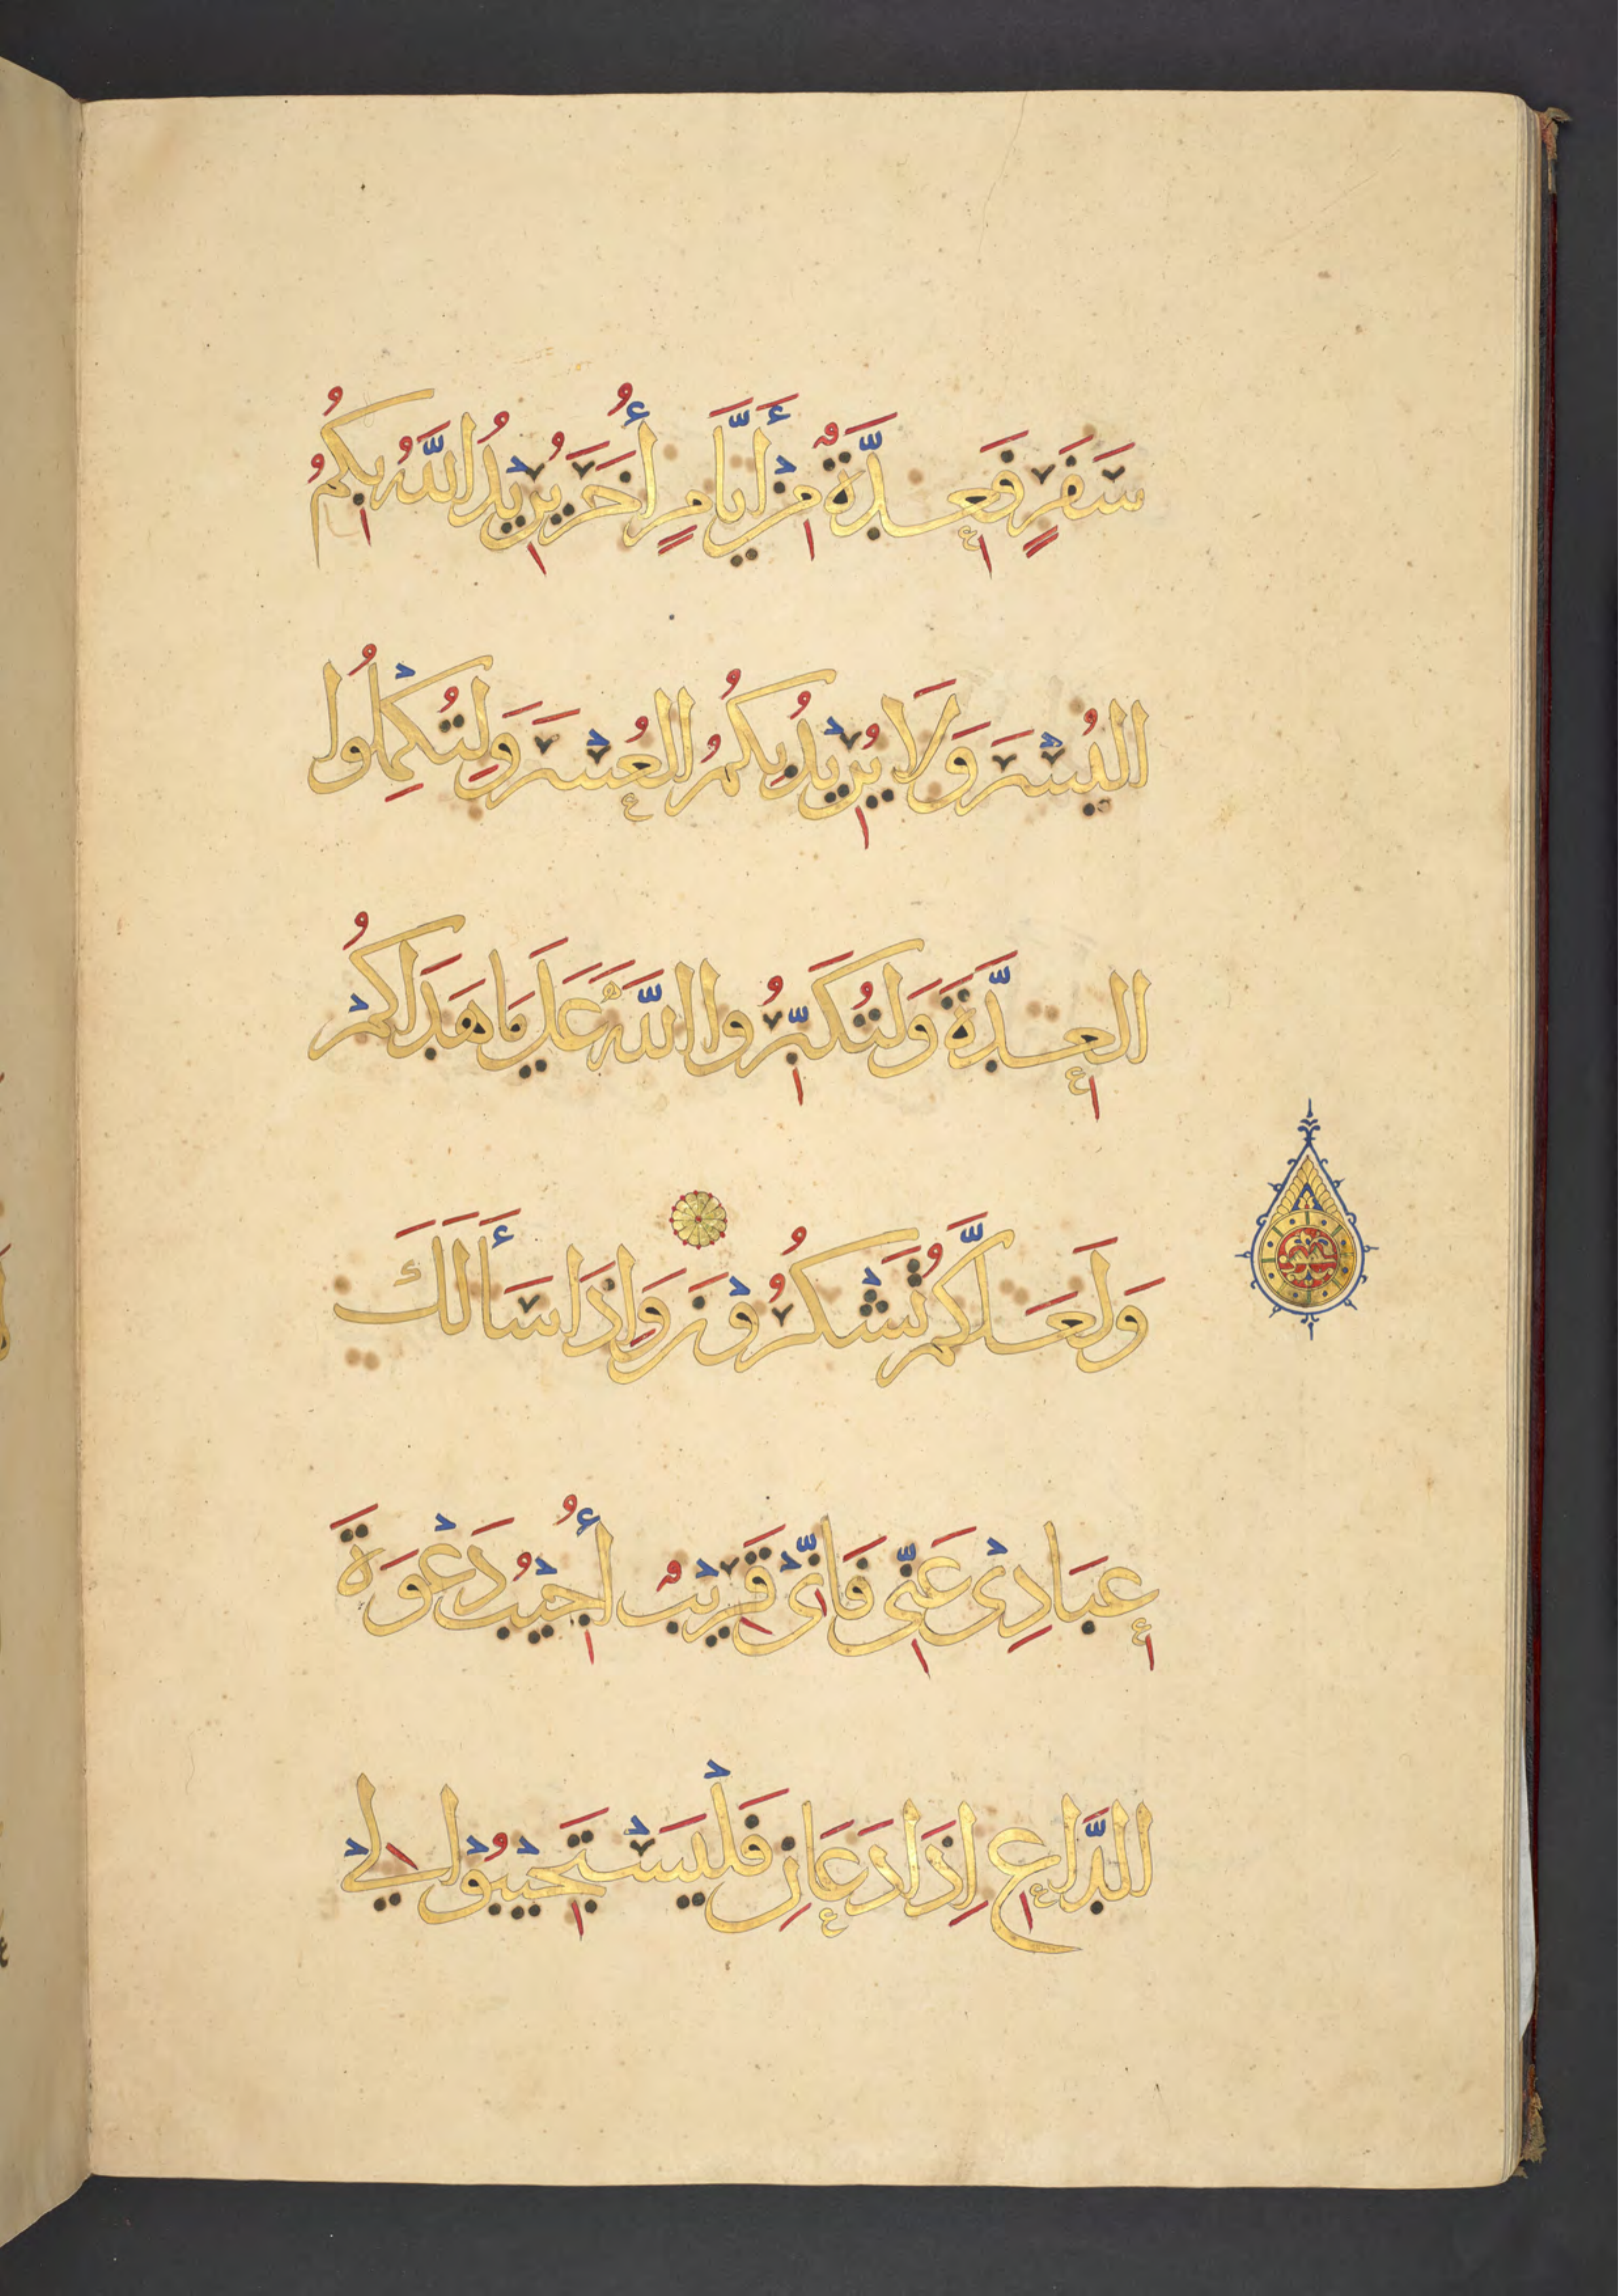 سَفَرٍ فَعِدَّةٌ مِنْ أَيَّامٍ أُخَرَ يُرِيْدُ اللَّهُ بِكُمُ
اليُسْرَ وَلَا يُرِيْدُ بِكُمُ العُسْرَ وَلِتُكْمِلُوا
العِدَّةَ وَلِتُكَبِّرُوا اللَّهَ عَلَى مَا هَدَاكُمْ
وَلَعَلَّكُمْ تَشْكُرُوْنَ وَإِذَا سَأَلَكَ
عِبَادِيْ عَنِّيْ فَإِنِّيْ قَرِيْبٌ أُجِيْبُ دَعْوَةَ
الدَّاعِ إِذَا دَعَانِ فَلْيَسْتَجِيْبُوْا لِيْ